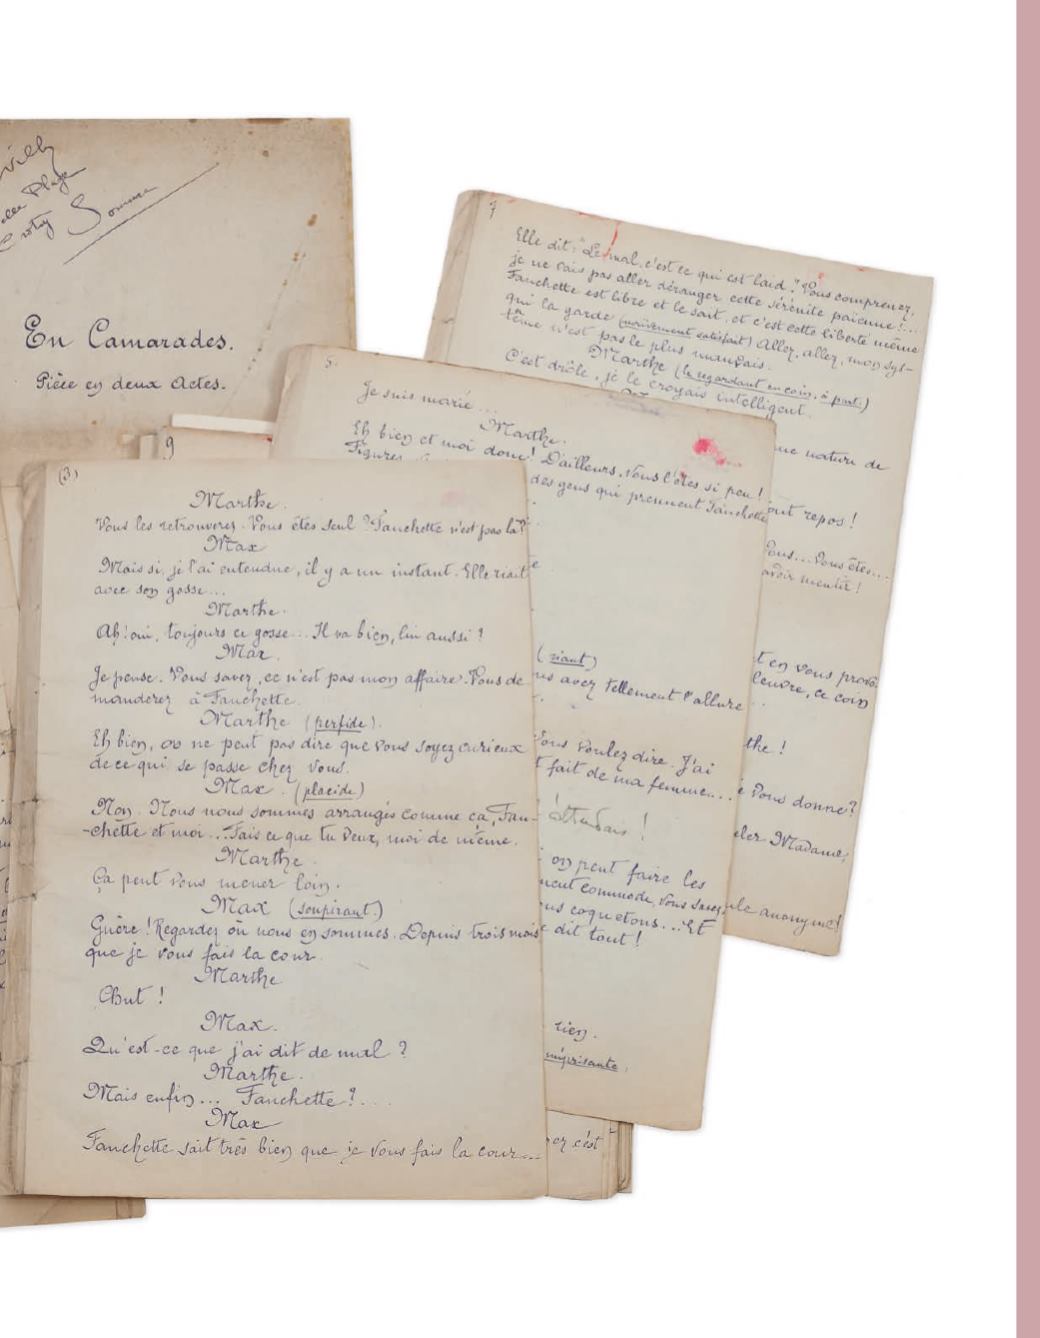 Somme
En Camarades.
Pièce en deux Actes.
7
Elle dit : "Le mal, c'est ce qui est laid". Vous comprenez,
je ne vais pas aller déranger cette sérénité païenne !...
Fanchette est libre et le sait, et c'est cette liberté même
qui la garde (mouvement satisfait) Allez, allez, mon sys-
tème n'est pas le plus mauvais.
Marthe (le regardant en coin, à part)
C'est drôle, je le croyais intelligent.
une nature de
tout repos !
Vous... Vous êtes...
avoir menti !
t en vous
ce coin
the !
é Vous donne ?
Madame,
anonyme !
5.
Je suis marié...
Marthe.
Eh bien et moi donc ! D'ailleurs, vous l'êtes si peu !
Figurez
des gens qui prennent Fanchette
(riant)
us avez tellement l'allure
Vous voulez dire. J'ai
t fait de ma femme...
on peut faire les
ment commode, vous savez,
us coquetons... Et
dit tout !
rien.
méprisante.
9
(3)
Marthe.
Vous les retrouverez. Vous êtes seul ? Fanchette n'est pas là ?
Max
Mais si, je l'ai entendue, il y a un instant. Elle riait
avec son gosse...
Marthe.
Ah ! oui, toujours ce gosse... Il va bien, lui aussi ?
Max.
Je pense. Vous savez, ce n'est pas mon affaire. Vous de
manderez à Fanchette.
Marthe (perfide).
Eh bien, on ne peut pas dire que vous soyez curieux
de ce qui se passe chez vous.
Max. (placide)
Non. Nous nous sommes arrangés comme ça, Fan-
-chette et moi... Fais ce que tu veux, moi de même.
Marthe.
Ça peut vous mener loin.
Max (soupirant.)
Guère ! Regardez où nous en sommes. Depuis trois mois
que je vous fais la cour.
Marthe
Chut !
Max.
Qu'est-ce que j'ai dit de mal ?
Marthe.
Mais enfin... Fanchette ?...
Max
Fanchette sait très bien que je vous fais la cour...
c'est